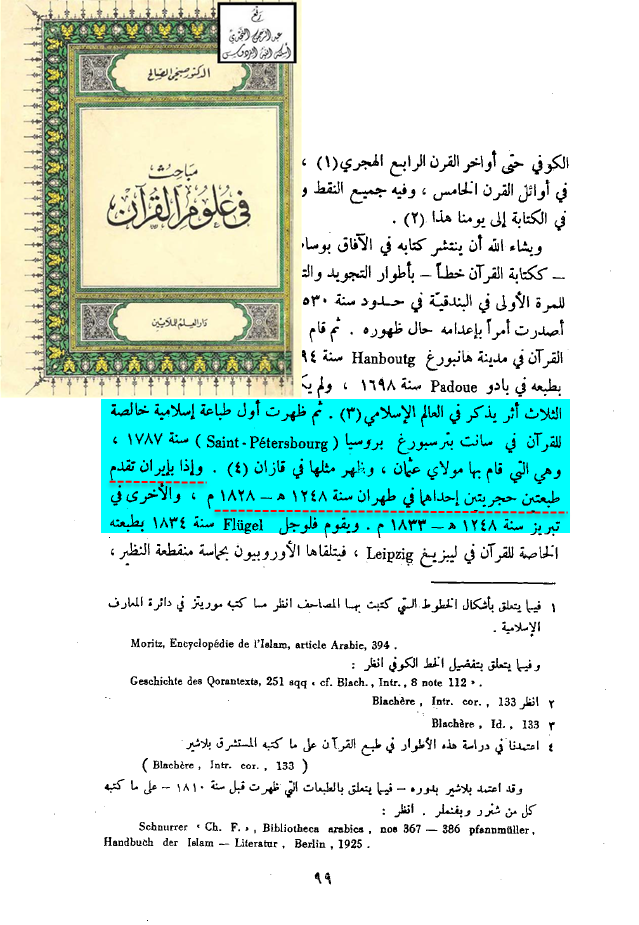 رقم
الدكتور صبحي الصالح
مباحث
في علوم القرآن
دار العلم للملايين
الكوفي حتى أواخر القرن الرابع الهجري (١) ،
في أوائل القرن الخامس ، وفيه جميع النقط و
في الكتابة إلى يومنا هذا (٢) .
ويشاء الله أن ينتشر كتابه في الآفاق بوسا
– ككتابة القرآن خطاً – بأطوار التجويد والت
للمرة الأولى في البندقية في حدود سنة ٥٣٠
أصدرت أمراً بإعدامه حال ظهوره . ثم قام
القرآن في مدينة هانبورغ Hanboutg سنة ٩٤
بطبعه في بادو Padoue سنة ١٦٩٨ ، ولم يك
الثلاث أثر يذكر في العالم الإسلامي (٣) . ثم ظهرت أول طباعة إسلامية خالصة
للقرآن في سانت بترسبورغ بروسيا (Saint-Pétersbourg) سنة ١٧٨٧ ،
وهي التي قام بها مولاي عثمان ، وظهر مثلها في قازان (٤) . وإذا بإيران تقدم
طبعتين حجريتين إحداهما في طهران سنة ١٢٤٨ هـ – ١٨٢٨ م ، والأخرى في
تبريز سنة ١٢٤٨ هـ – ١٨٣٣ م . ويقوم فلوجل Flügel سنة ١٨٣٤ بطبعته
الخاصة للقرآن في ليبزيغ Leipzig ، فيتلقاها الأوروبيون بحماسة منقطعة النظير ،
١ فيما يتعلق بأشكال الخطوط التي كتبت بها المصاحف انظر مسا كتبه موريتز في دائرة المعارف
الإسلامية .
Moritz, Encyclopédie de l'Islam, article Arabie, 394 .
وفيما يتعلق بتفضيل الخط الكوفي انظر :
Geschichte des Qorantexts, 251 sqq ‹ cf. Blach., Intr., 8 note 112 › .
٢ انظر Blachère , Intr. cor., 133
٣ Blachère , Id., 133
٤ اعتمدنا في دراسة هذه الأطوار في طبع القرآن على ما كتبه المستشرق بلاشير
( Blachère, Intr. cor., 133 )
وقد اعتمد بلاشير بدوره – فيما يتعلق بالطبعات التي ظهرت قبل سنة ١٨١٠ – على ما كتبه
كل من شنورر وبفنملر . انظر :
Schnurrer ‹ Ch. F. › , Bibliotheca arabica , nos 367 — 386 pfannmüller,
Handbuch der Islam — Literatur , Berlin , 1925 .
٩٩